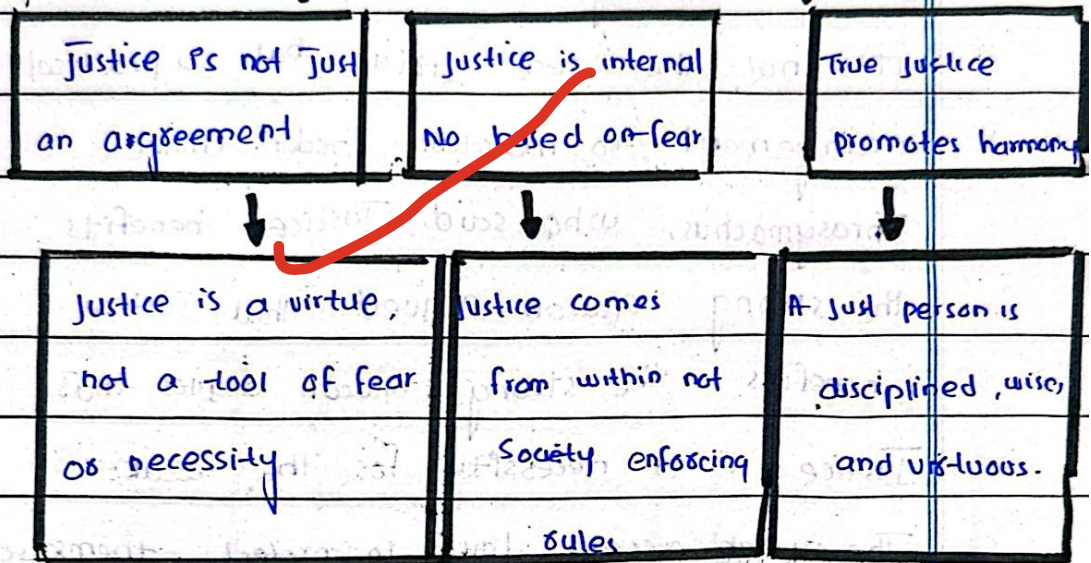 Justice is not Just
an argreement
Justice is internal
No based on fear
True justice
promotes harmony
Justice is a virtue,
not a tool of fear
or necessity
Justice comes
from within not
Society enforcing
rules
A Just person is
disciplined, wise,
and virtuous.